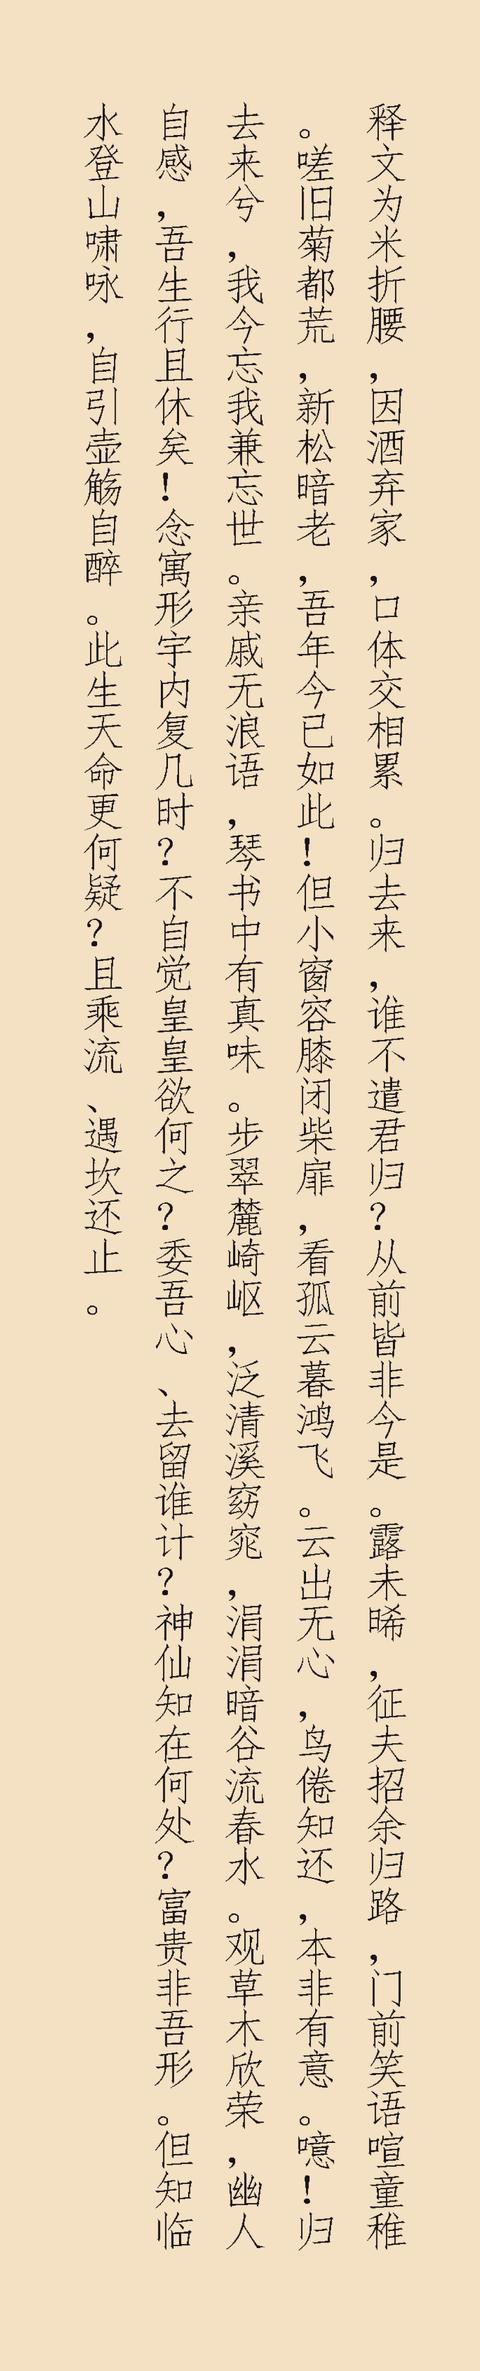 释文为米折腰，因酒弃家，口体交相累。归去来，谁不遣君归？从前皆非今是。露未晞，征夫招余归路，门前笑语喧童稚
。嗟旧菊都荒，新松暗老，吾年今已如此！但小窗容膝闭柴扉，看孤云暮鸿飞。云出无心，鸟倦知还，本非有意。噫！归
去来兮，我今忘我兼忘世。亲戚无浪语，琴书中有真味。步翠麓崎岖，泛清溪窈窕，涓涓暗谷流春水。观草木欣荣，幽人
自感，吾生行且休矣！念寓形宇内复几时？不自觉皇皇欲何之？委吾心、去留谁计？神仙知在何处？富贵非吾形。但知临
水登山啸咏，自引壶觞自醉。此生天命更何疑？且乘流、遇坎还止。